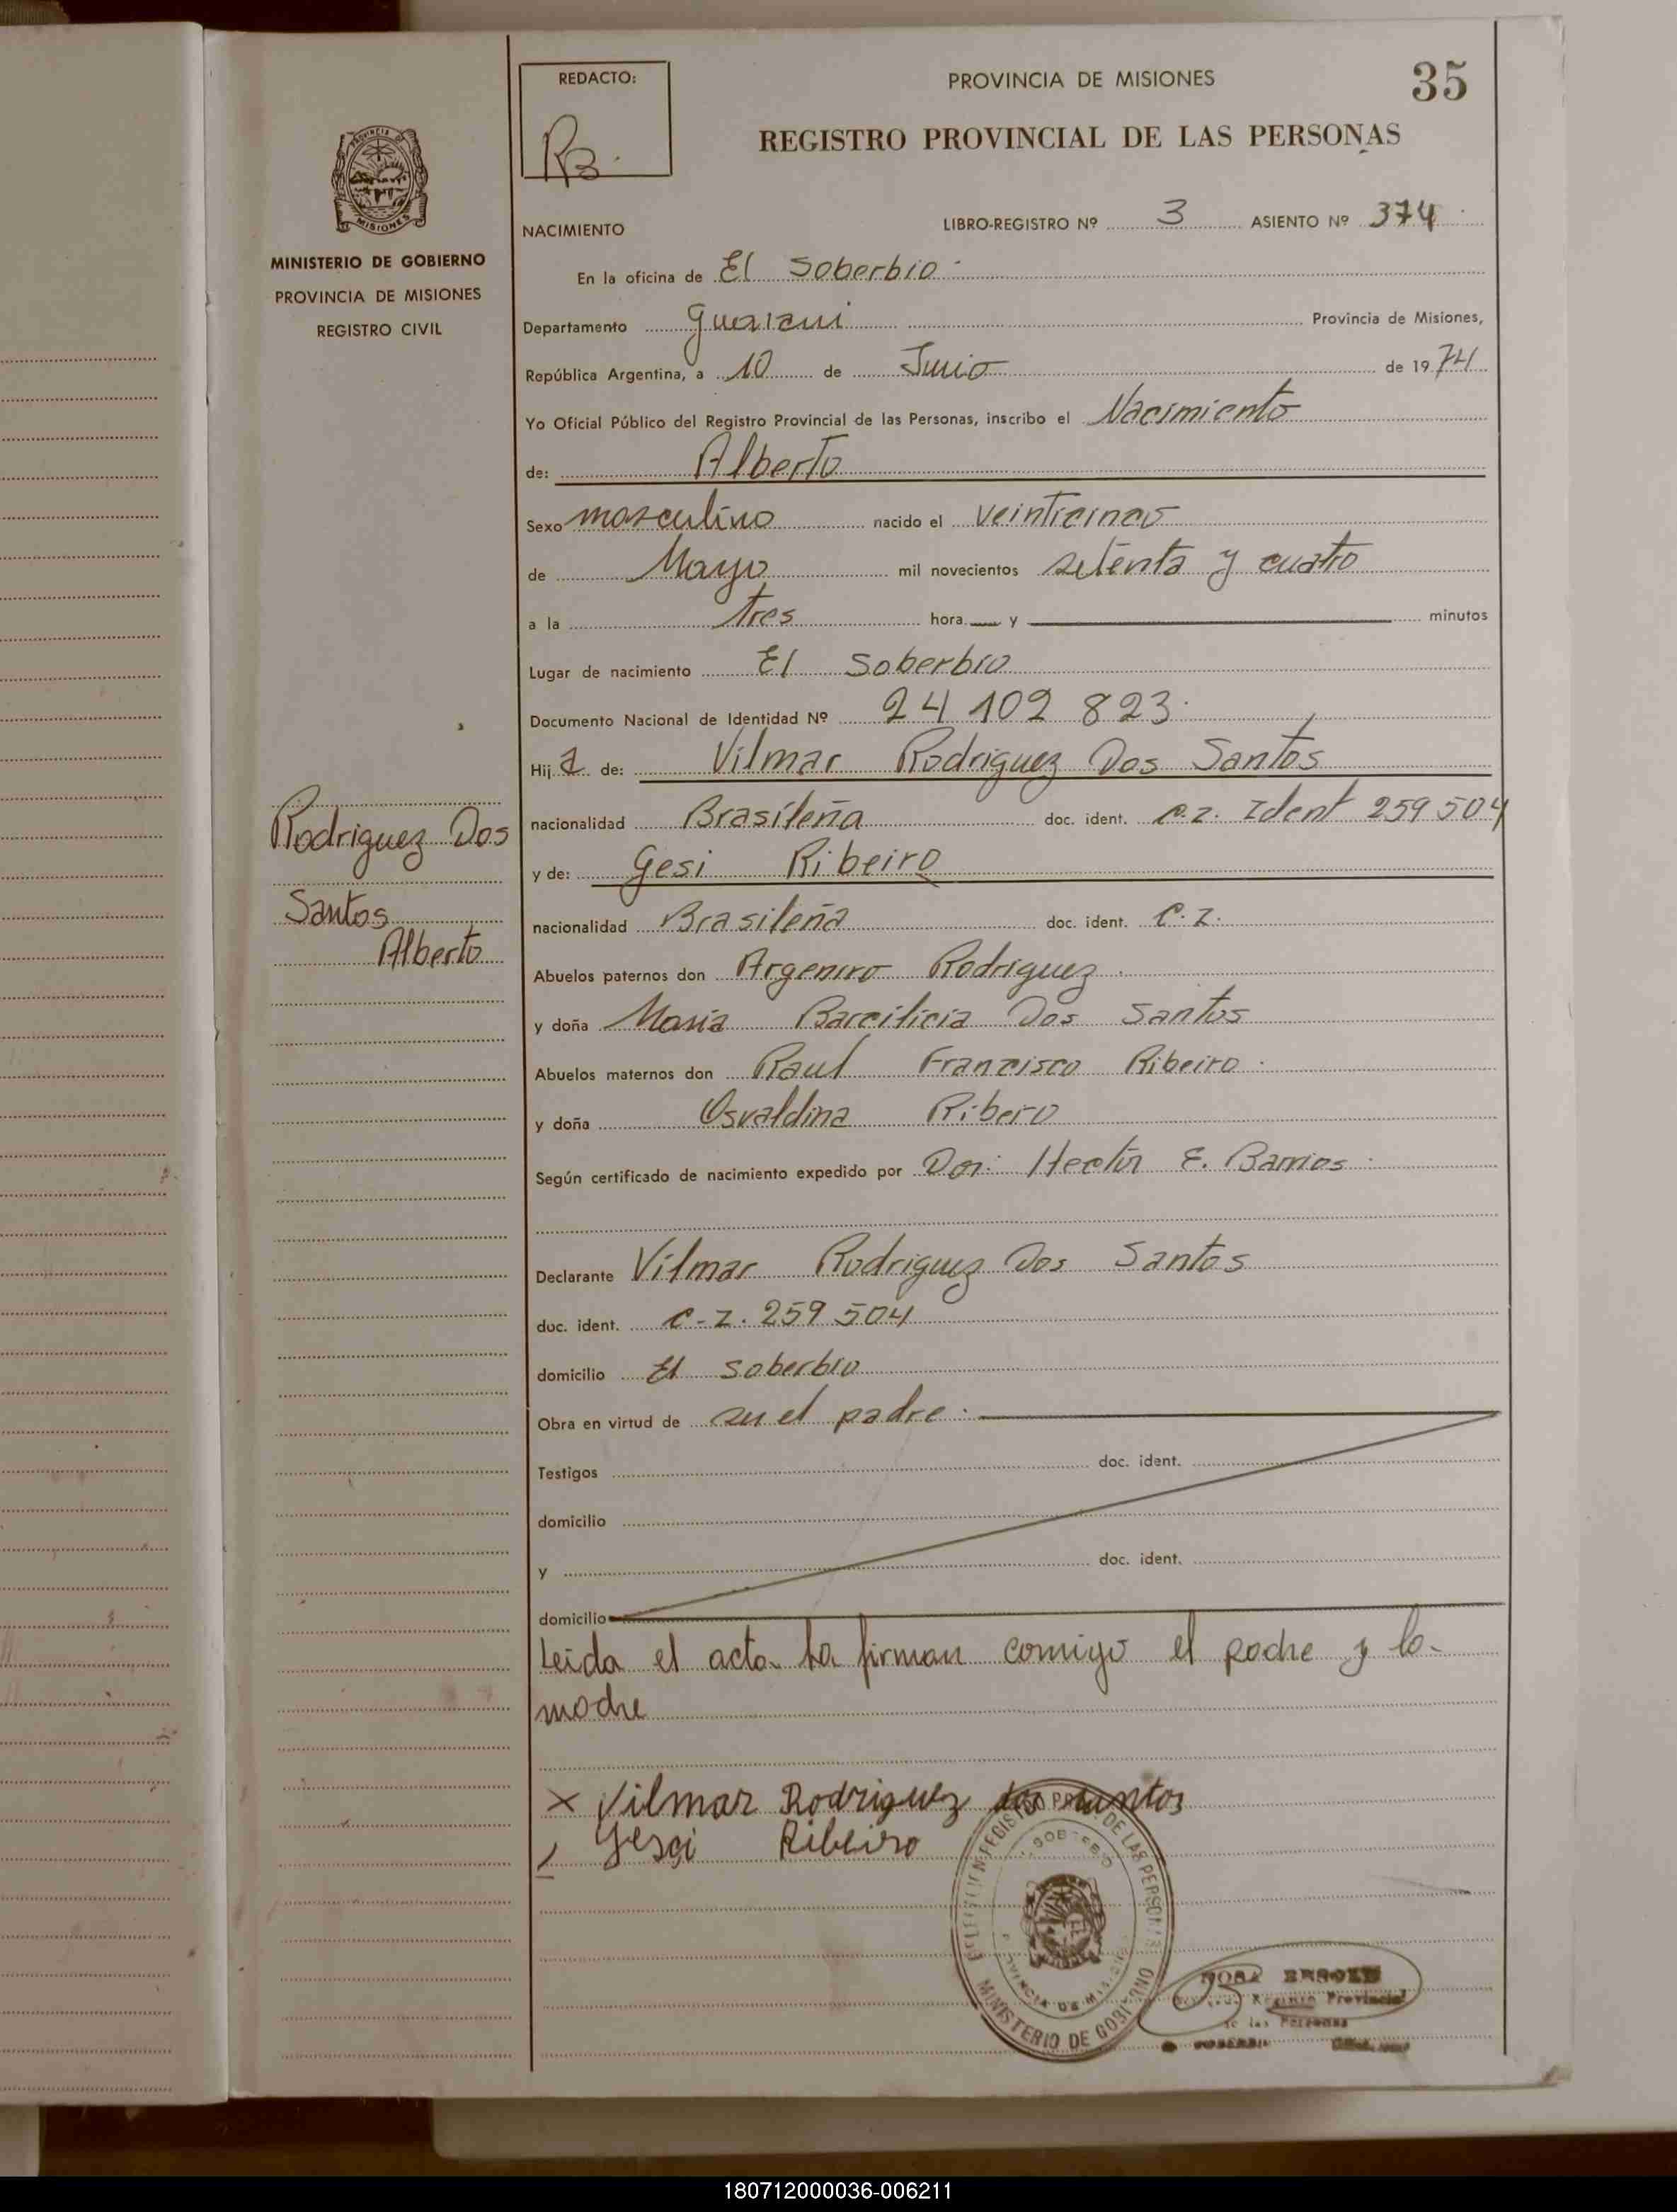 REDACTO:
PROVINCIA DE MISIONES
35
REGISTRO PROVINCIAL DE LAS PERSONAS
MINISTERIO DE GOBIERNO
PROVINCIA DE MISIONES
REGISTRO CIVIL
NACIMIENTO
LIBRO-REGISTRO Nº 3 ASIENTO Nº 374
En la oficina de El Soberbio
Departamento Guarani Provincia de Misiones,
República Argentina, a 10 de Junio de 1974
Yo Oficial Público del Registro Provincial de las Personas, inscribo el Nacimiento
de: Alberto
Sexo masculino nacido el veinticinco
de Mayo mil novecientos setenta y cuatro
a la tres hora y minutos
Lugar de nacimiento El Soberbio
Documento Nacional de Identidad Nº 24 102 823
Hij de: Vilmar Rodriguez Dos Santos
nacionalidad Brasileña doc. ident. C.I. Ident 259 504
y de: Gesi Ribeiro
nacionalidad Brasileña doc. ident. C.I.
Abuelos paternos don Rodriguez
y doña Maria Dos Santos
Abuelos maternos don Raul Francisco Ribeiro
y doña Osvaldina Ribero
Según certificado de nacimiento expedido por Hector E. Barrios
Declarante Vilmar Rodriguez Dos Santos
doc. ident. C-I. 259 504
domicilio El soberbio
Obra en virtud de el padre
Testigos doc. ident.
domicilio
y doc. ident.
domicilio
Leida el acta La firman comigo el padre y la
madre
Vilmar Rodriguez dos santos
Ribeiro
Rodriguez Dos
Santos
Alberto
MINISTERIO DE GOBIERNO
Provincial
de las Personas
180712000036-006211